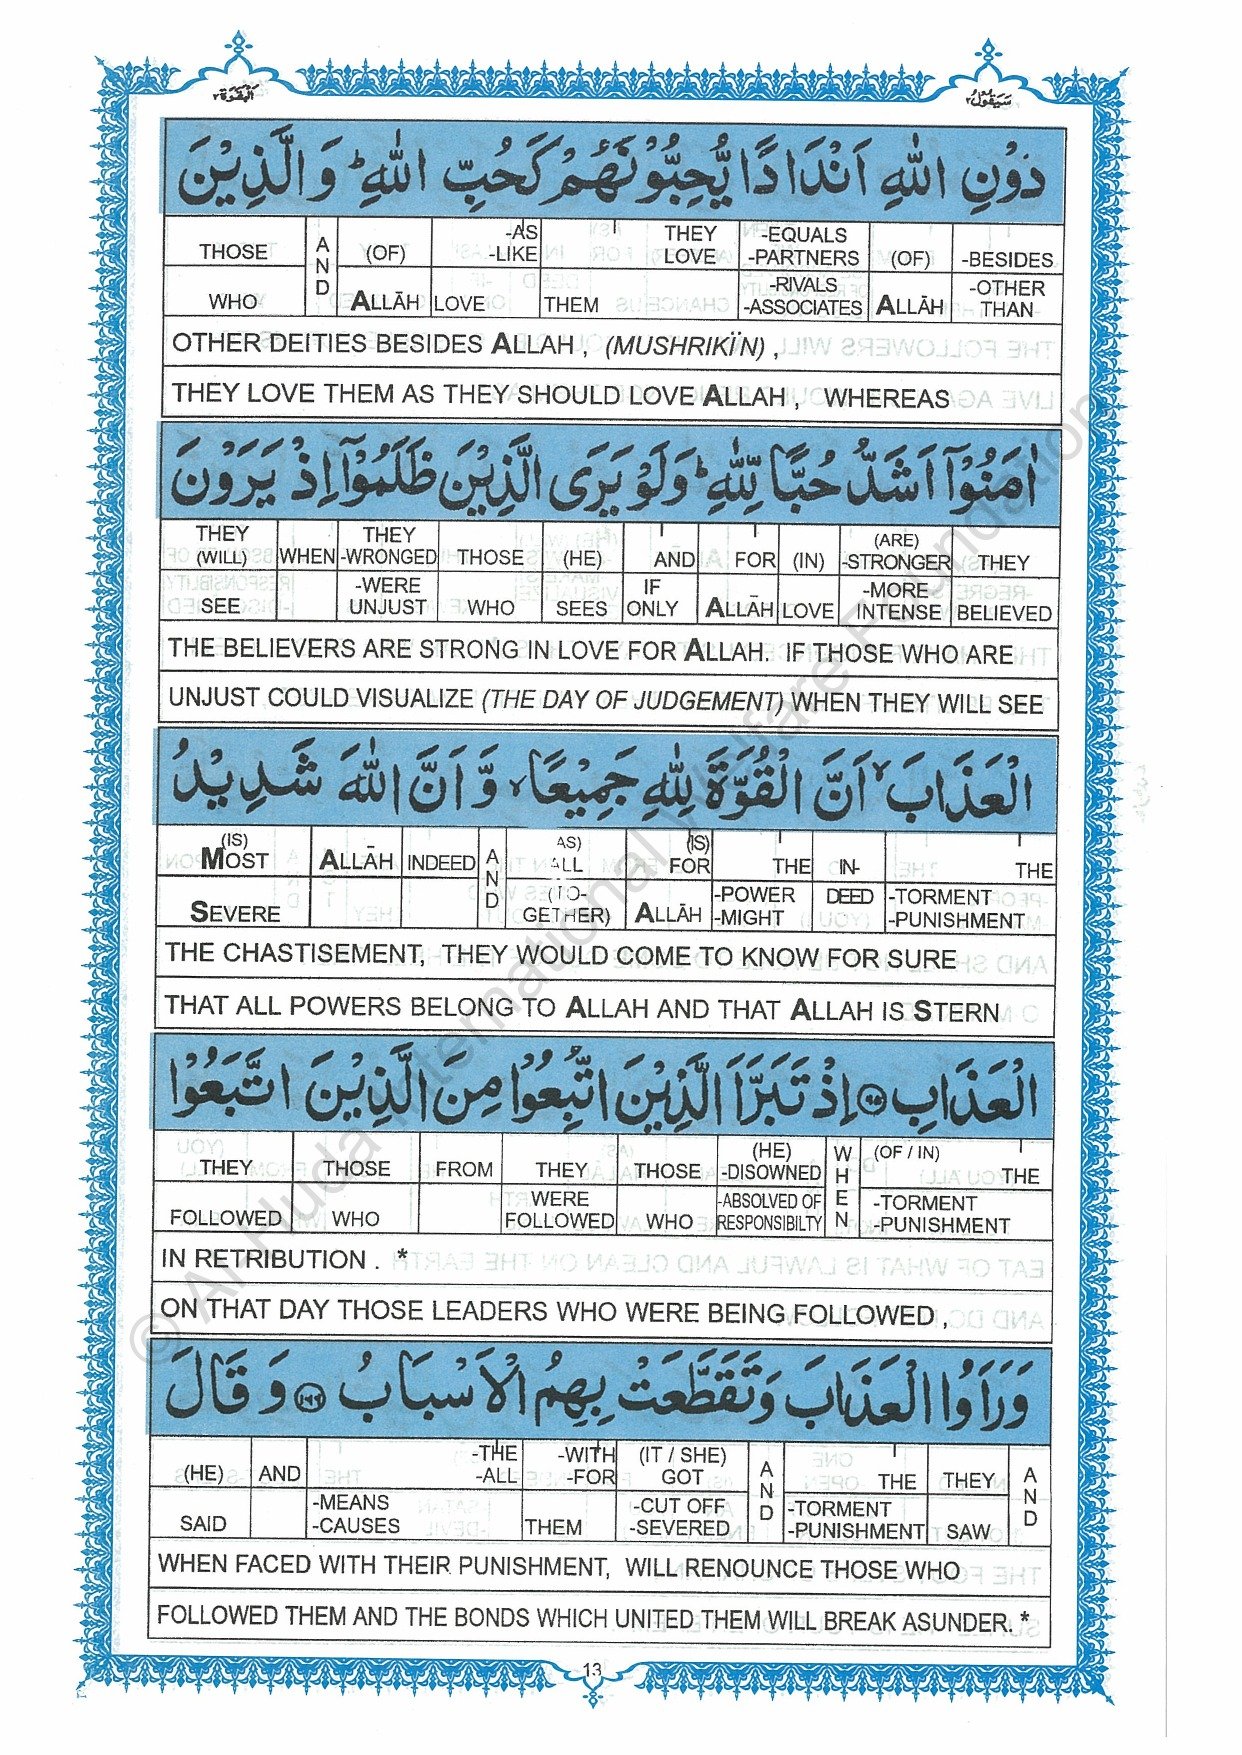 البقرة ٢
سيقول ٢
دُوۡنِ اللّٰهِ اَنۡدَادًا يُّحِبُّوۡنَهُمۡ كَحُبِّ اللّٰهِ ؕ وَالَّذِيۡنَ
THOSE AND (OF) -AS -LIKE THEY LOVE -EQUALS -PARTNERS (OF) -BESIDES
WHO ALLĀH LOVE THEM -RIVALS -ASSOCIATES ALLĀH -OTHER THAN
OTHER DEITIES BESIDES ALLAH , (MUSHRIKÏN) ,
THEY LOVE THEM AS THEY SHOULD LOVE ALLAH , WHEREAS
اٰمَنُوۡۤا اَشَدُّ حُبًّا لِّلّٰهِ ؕ وَلَوۡ يَرَى الَّذِيۡنَ ظَلَمُوۡۤا اِذۡ يَرَوۡنَ
THEY (WILL) WHEN THEY -WRONGED THOSE (HE) AND FOR (IN) (ARE) -STRONGER THEY
SEE -WERE UNJUST WHO SEES IF ONLY ALLĀH LOVE -MORE INTENSE BELIEVED
THE BELIEVERS ARE STRONG IN LOVE FOR ALLAH. IF THOSE WHO ARE
UNJUST COULD VISUALIZE (THE DAY OF JUDGEMENT) WHEN THEY WILL SEE
الۡعَذَابَ ۙ اَنَّ الۡقُوَّةَ لِلّٰهِ جَمِيۡعًا ۙ وَّاَنَّ اللّٰهَ شَدِيۡدُ
(IS) MOST ALLĀH INDEED AND AS) ALL (IS) FOR THE IN- THE
SEVERE (TO- GETHER) ALLĀH -POWER -MIGHT DEED -TORMENT -PUNISHMENT
THE CHASTISEMENT, THEY WOULD COME TO KNOW FOR SURE
THAT ALL POWERS BELONG TO ALLAH AND THAT ALLAH IS STERN
الۡعَذَابِ ١٦٥ اِذۡ تَبَرَّاَ الَّذِيۡنَ اتُّبِعُوۡا مِنَ الَّذِيۡنَ اتَّبَعُوۡا
THEY THOSE FROM THEY THOSE (HE) -DISOWNED WHEN (OF / IN) THE
FOLLOWED WHO WERE FOLLOWED WHO -ABSOLVED OF RESPONSIBILTY -TORMENT -PUNISHMENT
IN RETRIBUTION . *
ON THAT DAY THOSE LEADERS WHO WERE BEING FOLLOWED ,
وَرَاَوُا الۡعَذَابَ وَتَقَطَّعَتۡ بِهِمُ الۡاَسۡبَابُ ١٦٦ وَقَالَ
(HE) AND -THE -ALL -WITH -FOR (IT / SHE) GOT AND THE THEY AND
SAID -MEANS -CAUSES THEM -CUT OFF -SEVERED -TORMENT -PUNISHMENT SAW
WHEN FACED WITH THEIR PUNISHMENT, WILL RENOUNCE THOSE WHO
FOLLOWED THEM AND THE BONDS WHICH UNITED THEM WILL BREAK ASUNDER. *
13
© Al-Huda International Welfare Foundation